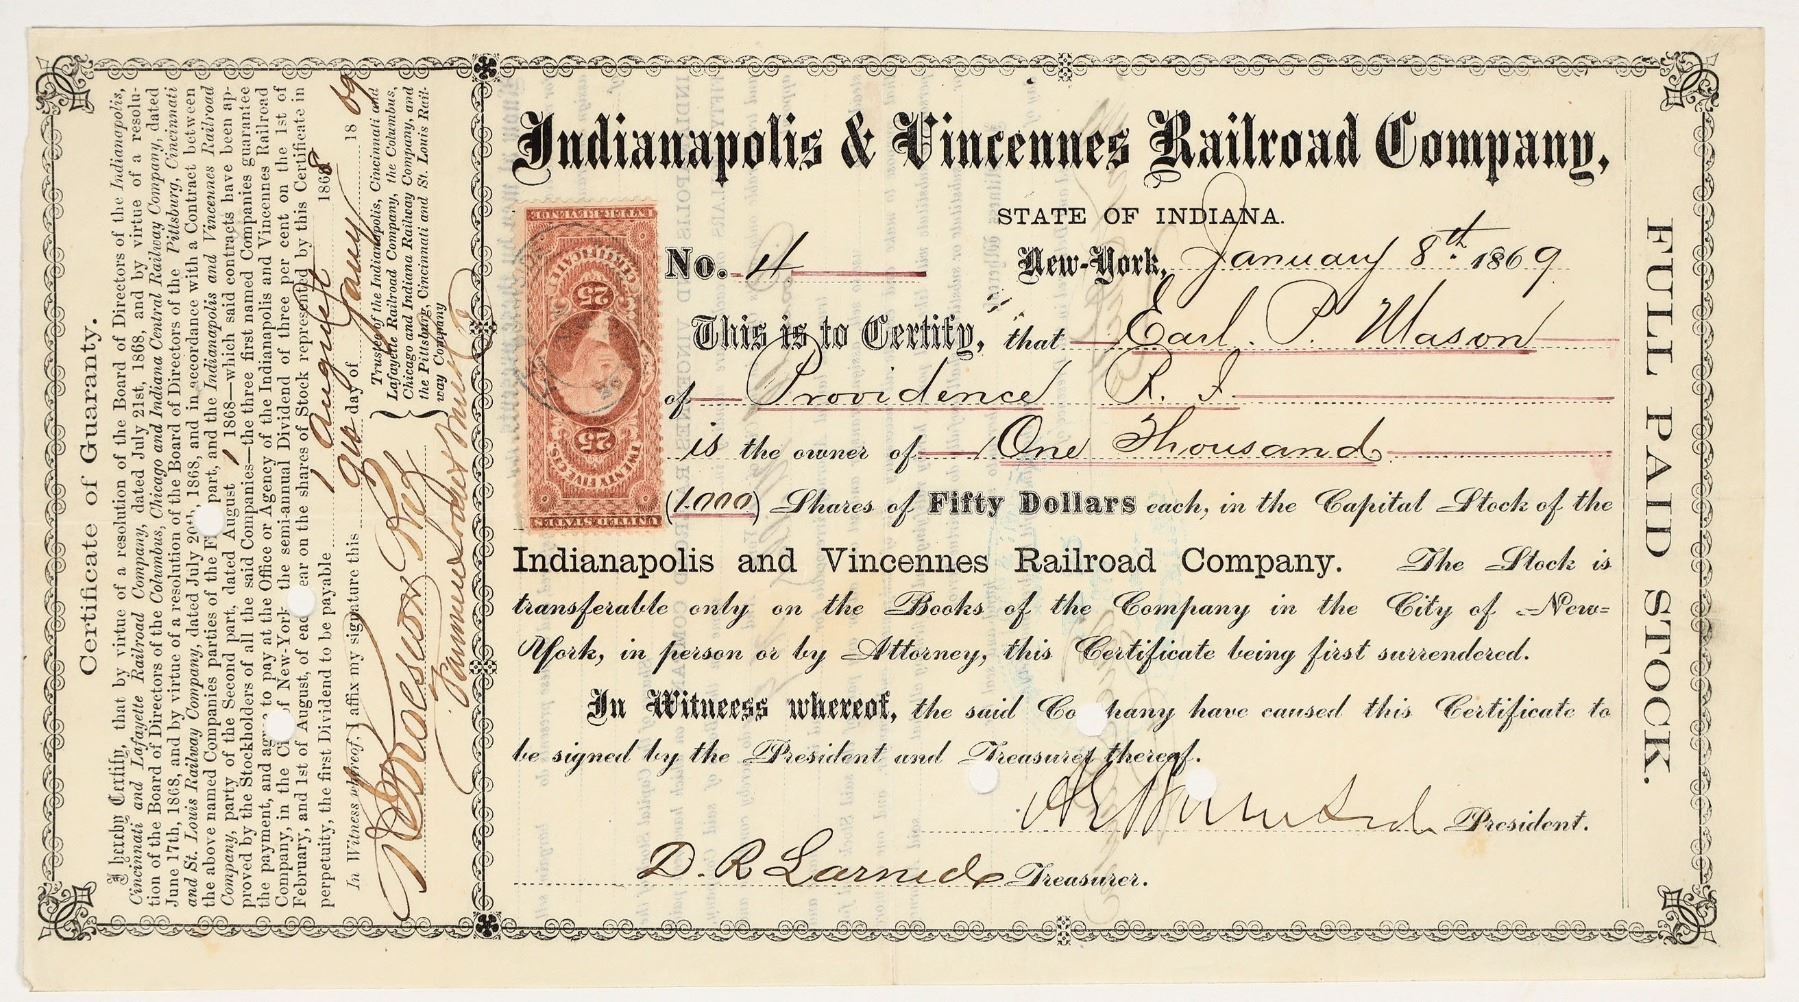 Certificate of Guaranty.
I hereby Certify, that by virtue of a resolution of the Board of Directors of the Indianapolis,
Cincinnati and Lafayette Railroad Company, dated July 21st, 1868, and by virtue of a resolu-
tion of the Board of Directors of the Columbus, Chicago and Indiana Central Railway Company, dated
June 17th, 1868, and by virtue of a resolution of the Board of Directors of the Pittsburg, Cincinnati
and St. Louis Railway Company, dated July 20th, 1868, and in accordance with a Contract between
the above named Companies parties of the F part, and the Indianapolis and Vincennes Railroad
Company, party of the Second part, dated August 1 1868—which said contracts have been ap-
proved by the Stockholders of all the said Companies—the three first named Companies guarantee
the payment, and agree to pay at the Office or Agency of the Indianapolis and Vincennes Railroad
Company, in the Ci of New-York the semi-annual Dividend of three per cent on the 1st of
February, and 1st of August, of each year on the shares of Stock represented by this Certificate in
perpetuity, the first Dividend to be payable 1 August 1868
In Witness whereof, I affix my signature this 9th day of Jany 1869
Trustee of the Indianapolis, Cincinnati and
Lafayette Railroad Company, the Columbus,
Chicago and Indiana Railway Company, and
the Pittsburg, Cincinnati and St. Louis Rail-
way Company
Indianapolis & Vincennes Railroad Company,
STATE OF INDIANA.
No. 4 New-York, January 8th. 1869
This is to Certify, that Earl. P. Mason
of Providence R. I.
is the owner of One Thousand
(1000) Shares of Fifty Dollars each, in the Capital Stock of the
Indianapolis and Vincennes Railroad Company. The Stock is
transferable only on the Books of the Company in the City of New-
York, in person or by Attorney, this Certificate being first surrendered.
In Witness whereof, the said Company have caused this Certificate to
be signed by the President and Treasurer thereof.
President.
D. R. Larned Treasurer.
FULL PAID STOCK.
UNITED STATES
TWENTY FIVE CTS.
25
25
CERTIFICATE
INTER. REVENUE